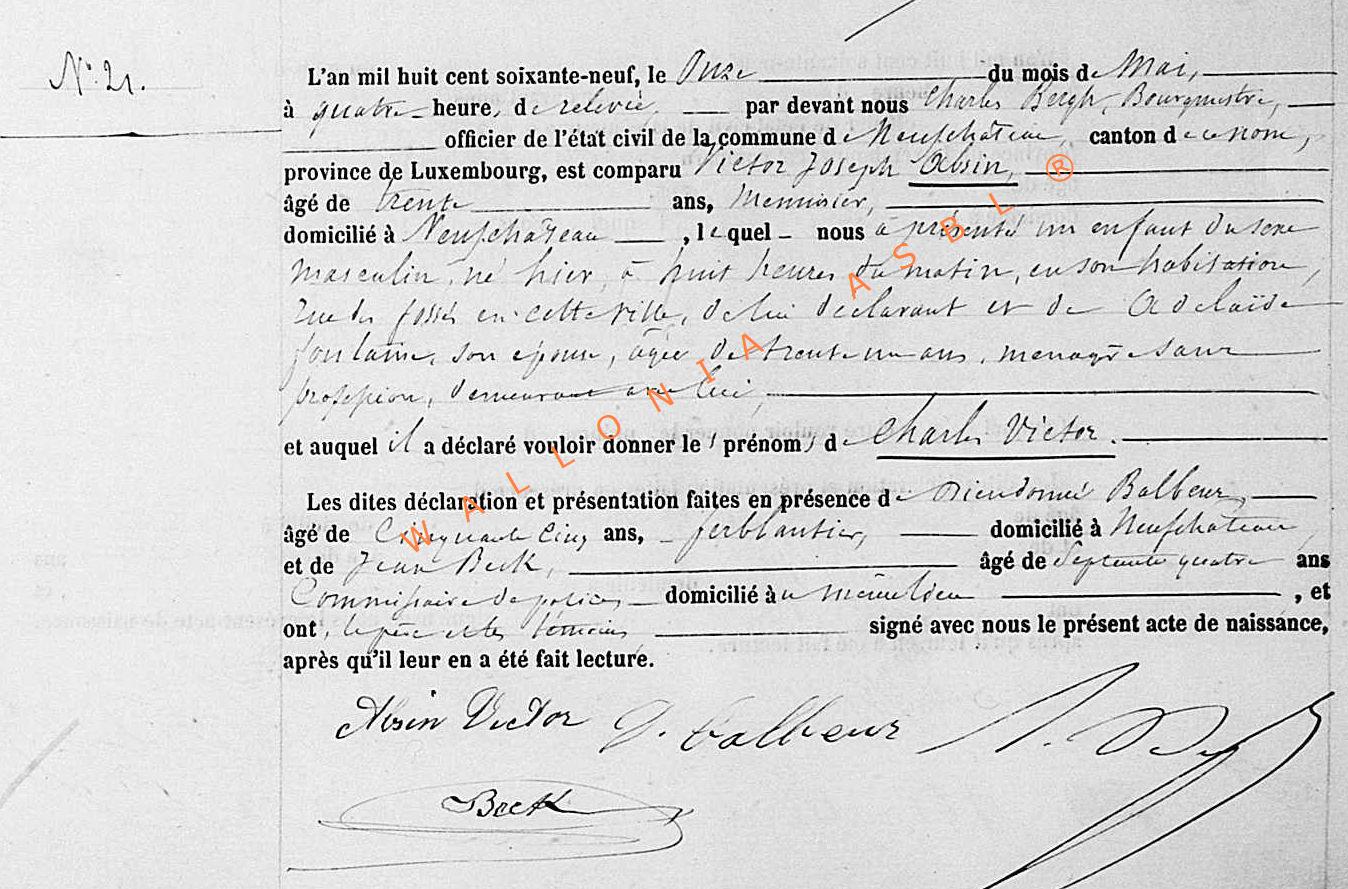 N° 21.
L'an mil huit cent soixante-neuf, le Onze du mois de Mai,
à quatre heure, de relevée, par devant nous Charles Bergh, Bourgmestre,
officier de l'état civil de la commune de Neufchâteau, canton de ce nom,
province de Luxembourg, est comparu Victor Joseph Absin,
âgé de trente ans, Menuisier,
domicilié à Neufchâteau, lequel nous a présenté un enfant du sexe
masculin, né hier, à huit heures du matin, en son habitation,
rue des fossés en cette ville, de lui déclarant et de Adelaïde
fontaine, son épouse, âgée de trente un ans, menagère sans
profession, demeurant avec lui,
et auquel il a déclaré vouloir donner les prénoms de Charles Victor.
Les dites déclaration et présentation faites en présence de Dieudonné Balbeur,
âgé de Cinquante Cinq ans, ferblantier, domicilié à Neufchâteau
et de Jean Beck, âgé de Septante quatre ans
Commissaire de police, domicilié à u même lieu, et
ont, le père et les témoins signé avec nous le présent acte de naissance,
après qu'il leur en a été fait lecture.
Absin Victor D. Balbeur
Beck
WALLONIA ASBL ®